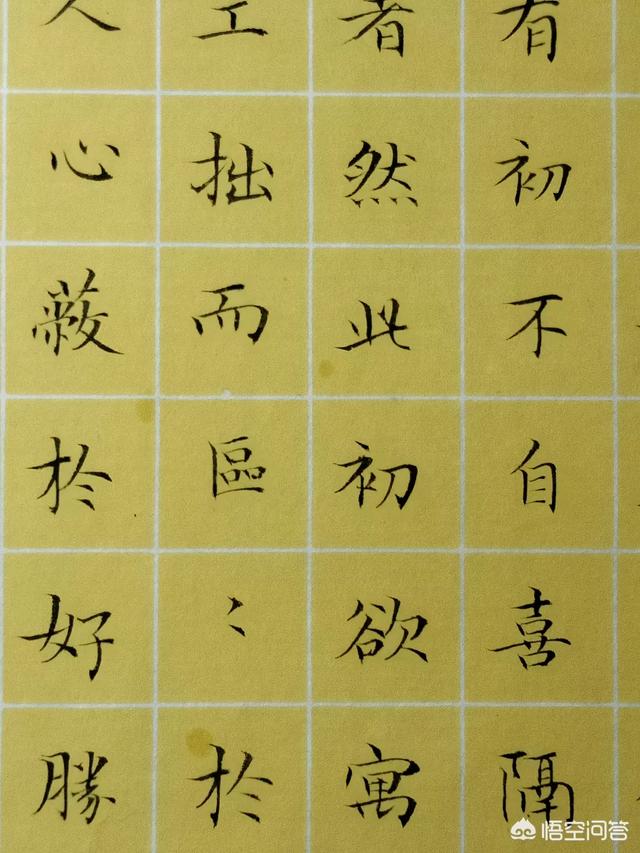 有初不自喜隔
者然此初欲寓
工拙而區〻於
人心蔽於好勝
悟空问答